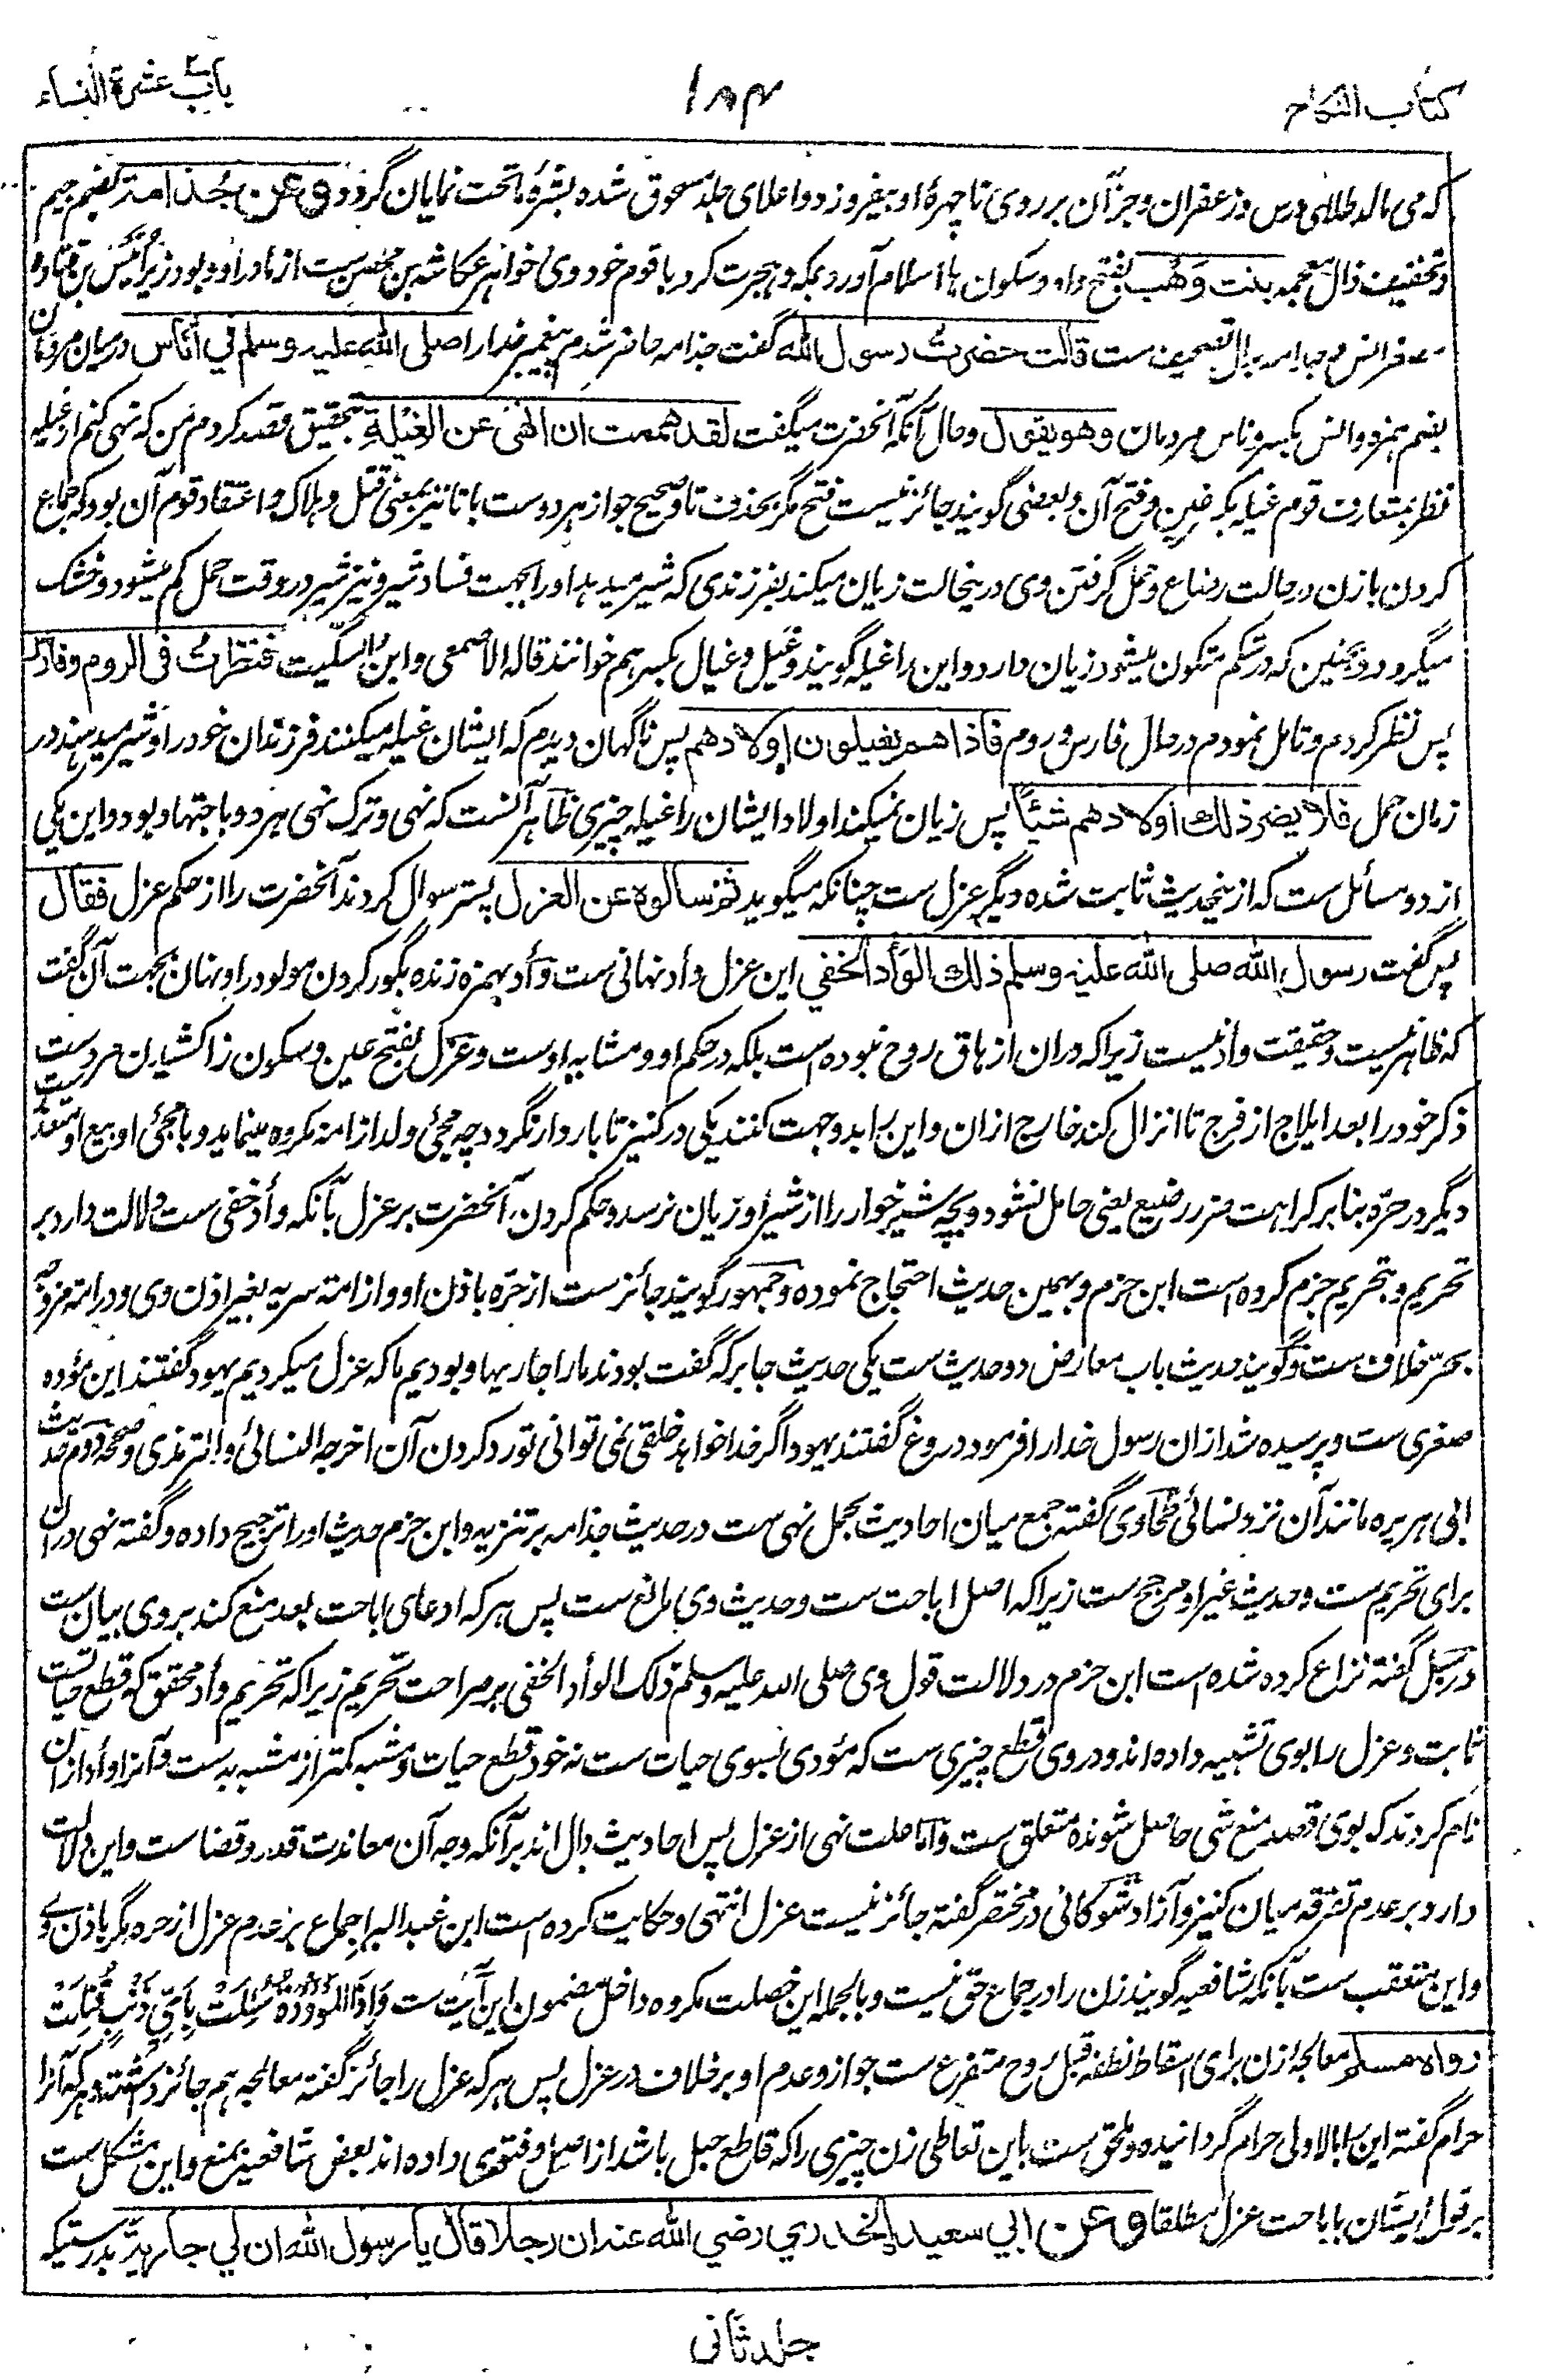 کتاب النکاح
۱۸۴
باب عشرة النساء
که می مالد طلای ورس وزعفران وجز آن بر روی تا چهرهٔ او بیفروزد و اعلای جلد مسحوق شده بشرهٔ ماتحت نمایان گردد وعن جذامة بضم جیم
وتخفیف ذال معجمه بنت وهب بفتح واو وسکون ها اسلام آورد بمکه وهجرت کرد با قوم خود و وی خواهر عکاشه بن محصن ست از مادر او و بود زیر انیس بن قتاده
بدال تصحیف ست قالت حضرت رسول الله گفت جذامه حاضر شدم پیغمبر خدا را صلی الله علیه وسلم في أناس درمیان مردمان
بضم همزه و انس بکسر و ناس مردمان وهو یقول و حال آنکه آنحضرت میگفت لقد هممت ان انهی عن الغیلة بتحقیق قصد کردم من که نهی کنم از غیله
نظر بتعارف قوم غیله بکسر غین و فتح آن و بعضی گویند جائز نیست فتح مگر بحذف تا و صحیح جواز هر دوست با تا نیز بمعنی قتل و هلاک و اعتقاد قوم آن بود که جماع
کردن با زن در حالت رضاع و حمل گرفتن وی درینحالت زیان میکند بفرزندی که شیر میدهد او را بجهت فساد شیر و نیز شیر در وقت حمل کم میشود و خشک
میگردد و جنین که در شکم متکون میشود زیان دارد و این را غیله گویند و غیل و غیال بکسر هم خوانند قاله الاصمعی و ابن السکیت فنظرت في الروم وفارس
پس نظر کردم و تامل نمودم در حال فارس و روم فاذا هم یغیلون اولادهم پس ناگهان دیدم که ایشان غیله میکنند فرزندان خود را و شیر میدهند در
زمان حمل فلا یضر ذلك اولادهم شیئاً پس زیان نمیکند اولاد ایشان را غیله چیزی ظاهر آنست که نهی و ترک نهی هر دو باجتهاد بود و این یکی
از دو مسائل ست که ازینحدیث ثابت شده دیگر عزل ست چنانکه میگوید ثم سالوه عن العزل پستر سوال کردند آنحضرت را از حکم عزل فقال
پس گفت رسول الله صلی الله علیه وسلم ذلك الوأد الخفي این عزل وأد نهانی ست وأد بهمزه زنده بگور کردن مولود را و نهان بجهت آن گفت
که ظاهر نیست و حقیقت وأد نیست زیرا که دران ازهاق روح نبوده است بلکه در حکم او و مشابه اوست و عزل بفتح عین و سکون زا کشیدن مردست
ذکر خود را بعد ایلاج از فرج تا انزال کند خارج ازان و این را بدو جهت کنند یکی در کنیز تا باردار نگردد چه مجئی ولد از امه مکروه مینماید و با مجئی او بیع او متعذر ست
دیگر در حره بنا بر کراهت ضرر رضیع یعنی حامل نشود و بچه شیرخوار را از شیر او زیان نرسد و حکم کردن آنحضرت بر عزل بآنکه وأد خفی ست دلالت دارد بر
تحریم و بتحریم جزم کرده است ابن حزم و بهمین حدیث احتجاج نموده و جمهور گویند جائز ست از حره باذن او و از امه سریه بغیر اذن وی و در امه مزوجه
بحر خلاف ست و گویند حدیث باب معارض دو حدیث ست یکی حدیث جابر که گفت بودند ما را جاریها و بودیم ما که عزل میکردیم یهود گفتند این مؤده
صغری ست و پرسیده شد ازان رسول خدا را فرمود دروغ گفتند یهود اگر خدا خواهد خلقی نمی توانی تو رد کردن آن اخرجه النسائی و الترمذی و صححه دوم حدیث
ابی هریره مانند آن نزد نسائی طحاوی گفته جمع میان احادیث بحمل نهی ست در حدیث جذامه بر تنزیه و ابن حزم حدیث او را ترجیح داده و گفته نهی دران
برای تحریم ست و حدیث غیر او مرجح ست زیرا که اصل اباحت ست و حدیث وی مانع ست پس هر که ادعای اباحت بعد منع کند بر وی بیان ست
در سبل گفته نزاع کرده شده است ابن حزم در دلالت قول وی صلی الله علیه وسلم ذلک الوأد الخفی بر صراحت تحریم زیرا که تحریم وأد محقق که قطع حیات ست
ثابت و عزل را بوی تشبیه داده اند و در وی قطع چیزی ست که مؤدی بسوی حیات ست نه خود قطع حیات و مشبه کمتر از مشبه به ست و آنرا وأد ازان
نام کردند که بوی قصد منع شی حاصل شونده متعلق ست و اما علت نهی از عزل پس احادیث دال اند بر آنکه وجه آن معاندت قدر و قضا ست و این دلالت
دارد بر عدم تفرقه میان کنیز و آزاد شوکانی در مختصر گفته جائز نیست عزل انتهی و حکایت کرده است ابن عبد البر اجماع بر عدم عزل از حره مگر باذن وی
و این متعقب ست بآنکه شافعیه گویند زن را در جماع حق نیست و بالجمله این خصلت مکروه داخل مضمون این آیت ست وَإِذَا الْمَوْءُودَةُ سُئِلَتْ بِأَيِّ ذَنْبٍ قُتِلَتْ
رواه مسلم معالجهٔ زن برای اسقاط نطفه قبل روح متفرع ست جواز و عدم او بر خلاف در عزل پس هر که عزل را جائز گفته معالجه هم جائز داشته و هر که آنرا
حرام گفته این را بالاولی حرام گردانیده و ملحق ست باین تعاطی زن چیزی را که قاطع حبل باشد از اصل و فتوی داده اند بعض شافعیه بمنع و این مشکل ست
بر قول ایشان باباحت عزل مطلقا وعن ابي سعید الخدري رضي الله عنه ان رجلا قال یا رسول الله ان لي جاریة بدرستیکه
جلد ثانی